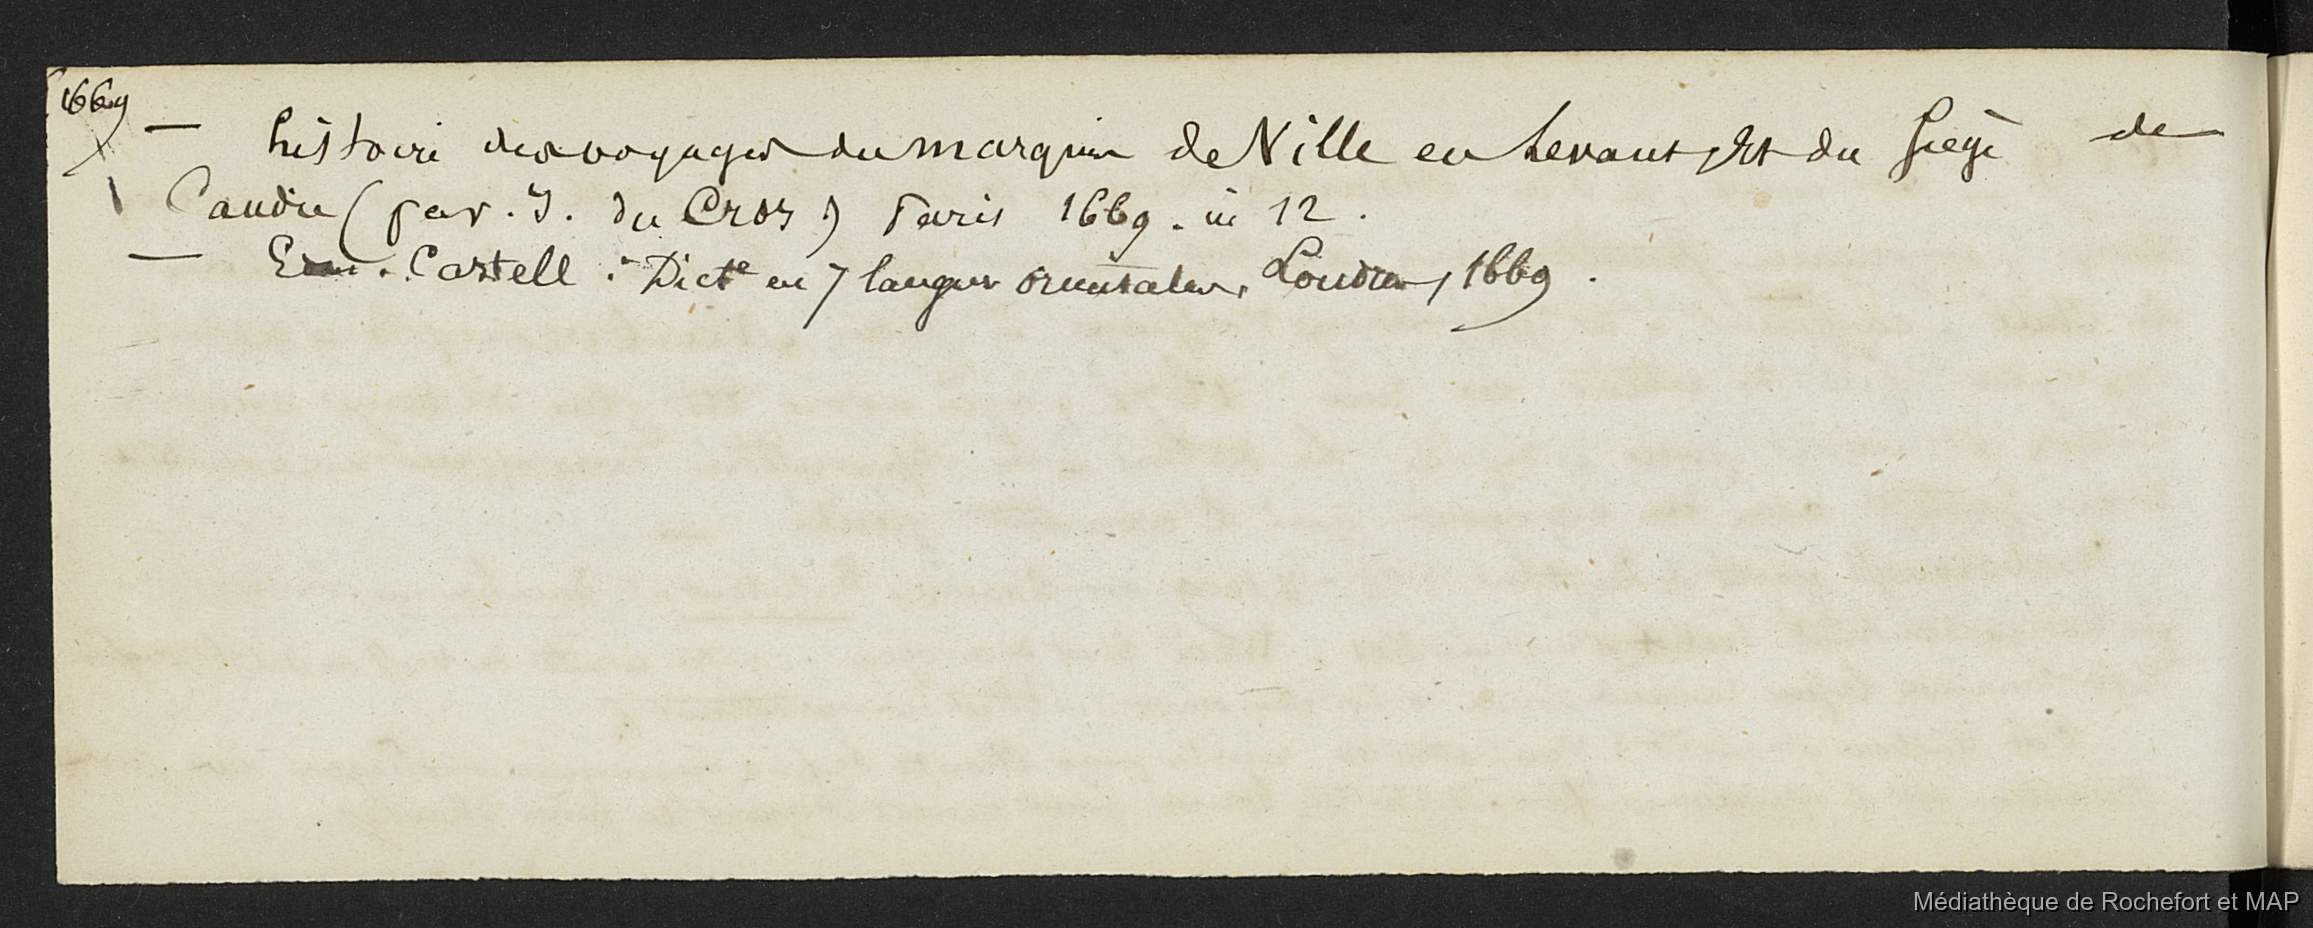 1669
— histoire des voyages du marquis de Ville en Levant, et du siege de
Candie (par J. du Cros) Paris 1669. in 12.
— Edm. Castell. Dictre en 7 langues orientales, Londres, 1669.
Médiathèque de Rochefort et MAP